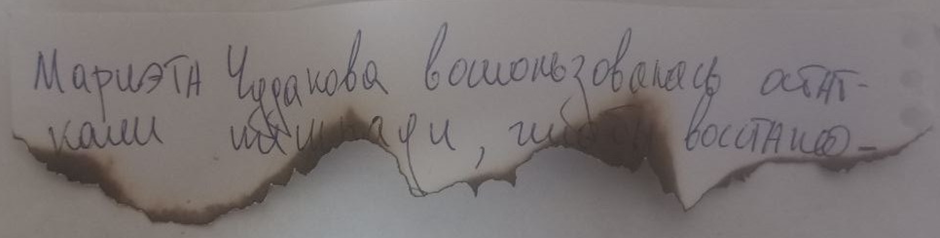 Мариэта Чудакова воспользовалась остат-
ками тетради, чтобы восстано-